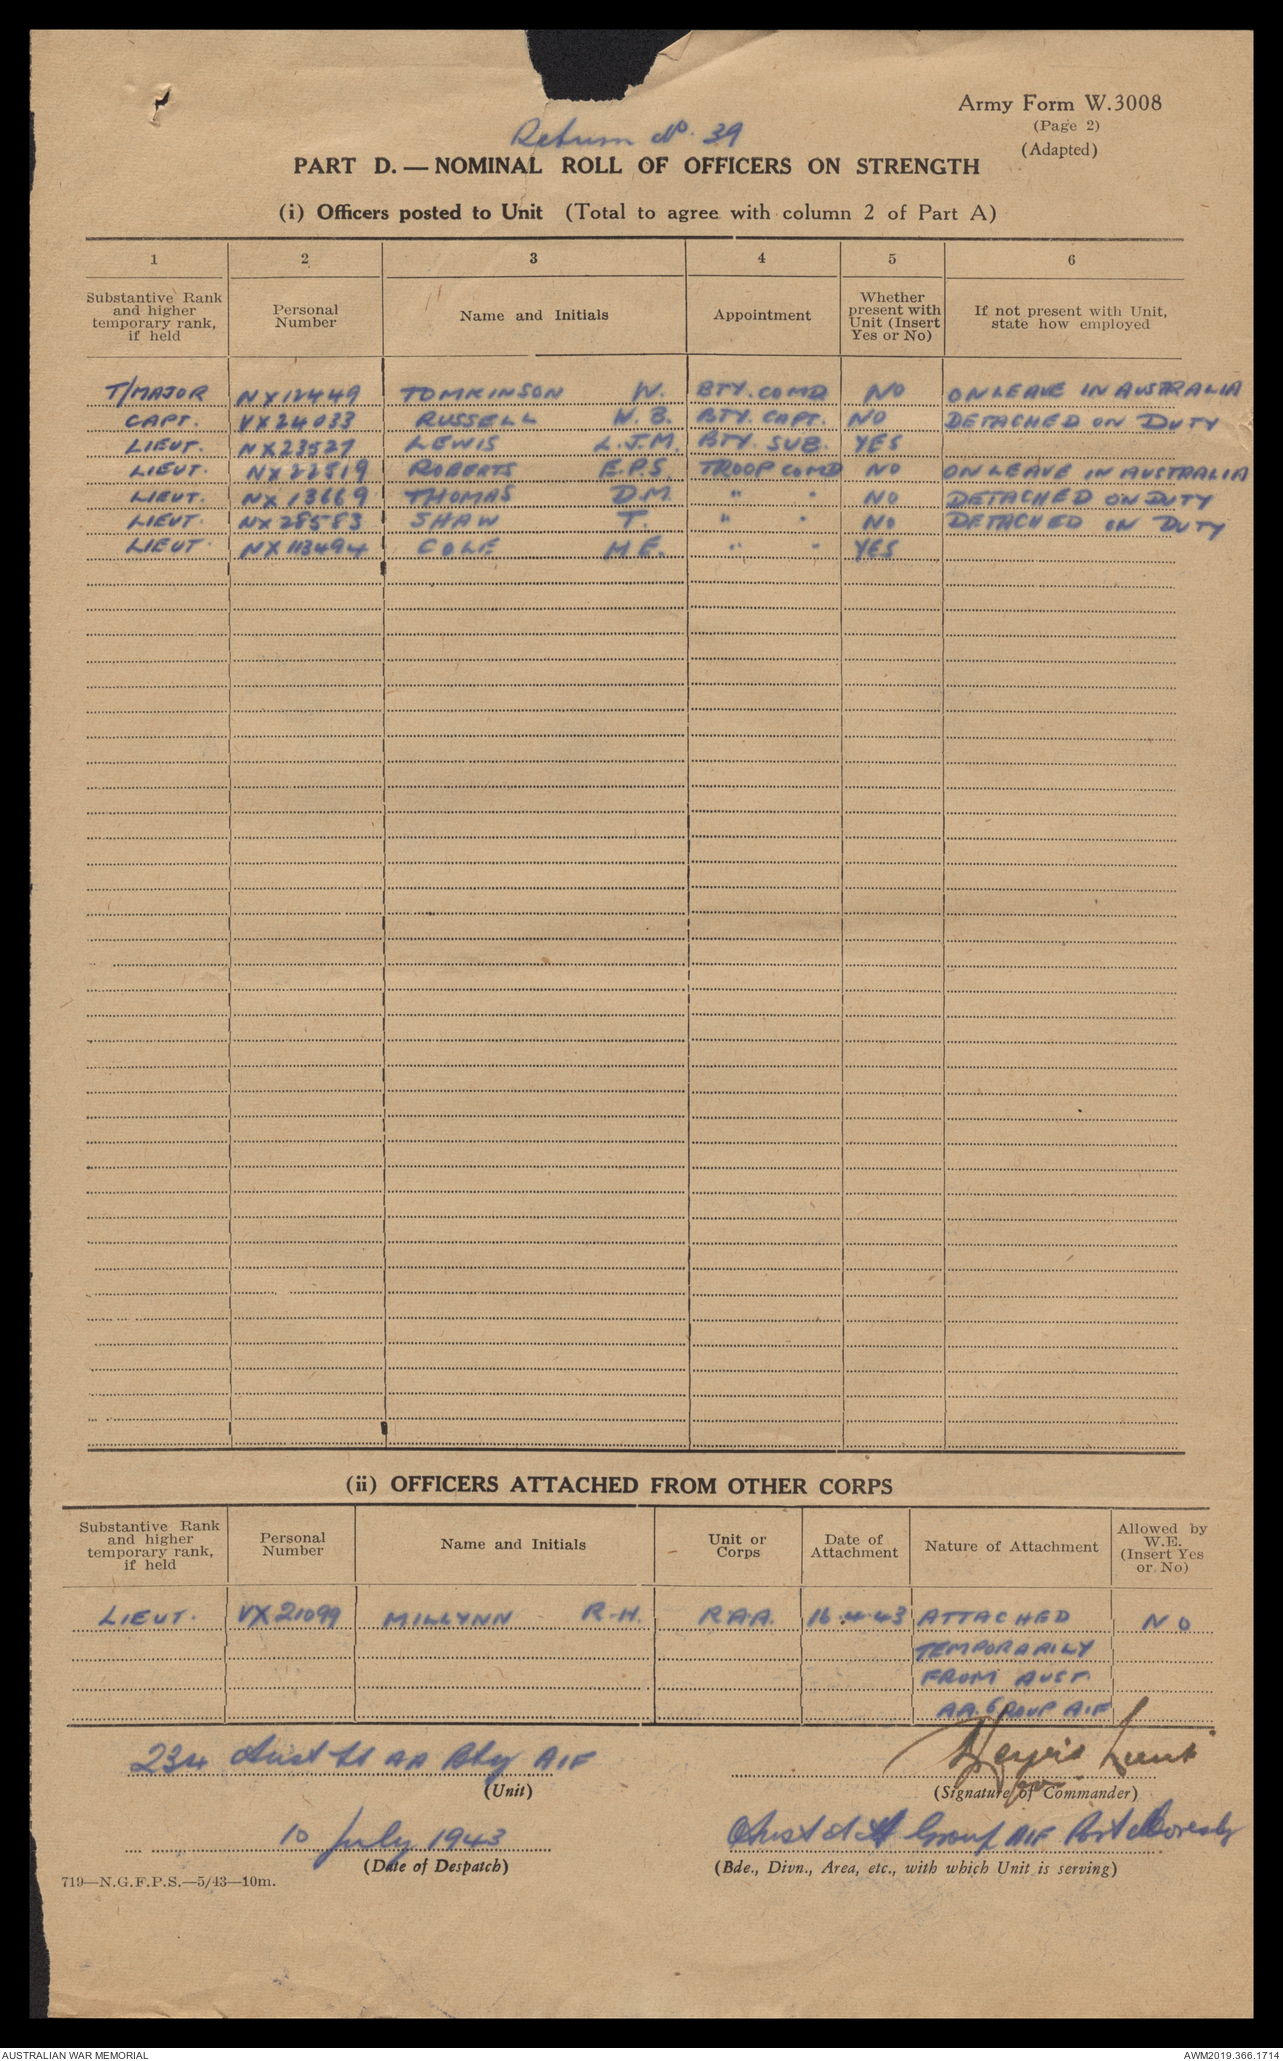 Army Form W.3008
(Page 2)
(Adapted)
Return No. 39
PART D.—NOMINAL ROLL OF OFFICERS ON STRENGTH
(i) Officers posted to Unit (Total to agree with column 2 of Part A)
1 2 3 4 5 6
Substantive Rank and higher temporary rank, if held
Personal Number
Name and Initials
Appointment
Whether present with Unit (Insert Yes or No)
If not present with Unit, state how employed
T/MAJOR NX12449 TOMKINSON W. BTY. COMD NO ON LEAVE IN AUSTRALIA
CAPT. VX24033 RUSSELL W.B. BTY. CAPT. NO DETACHED ON DUTY
LIEUT. NX23527 LEWIS L.J.M. BTY. SUB. YES
LIEUT. NX22519 ROBERTS E.P.S. TROOP COMD NO ON LEAVE IN AUSTRALIA
LIEUT. NX13669 THOMAS D.M. " " NO DETACHED ON DUTY
LIEUT. NX28583 SHAW T. " " NO DETACHED ON DUTY
LIEUT. NX113494 COLE M.E. " " YES
(ii) OFFICERS ATTACHED FROM OTHER CORPS
Substantive Rank and higher temporary rank, if held
Personal Number
Name and Initials
Unit or Corps
Date of Attachment
Nature of Attachment
Allowed by W.E. (Insert Yes or No)
LIEUT. VX21099 MILLYNN R.H. R.A.A. 16.4.43 ATTACHED NO
TEMPORARILY
FROM AUST.
AA. GROUP AIF
234 Aust Lt AA Bty AIF
Lieut
(Unit)
(Signature of Commander)
10 July 1943
Aust Group AIF Port Moresby
(Date of Despatch)
(Bde., Divn., Area, etc., with which Unit is serving)
719—N.G.F.P.S.—5/43—10m.
AUSTRALIAN WAR MEMORIAL
AWM2019.366.1714